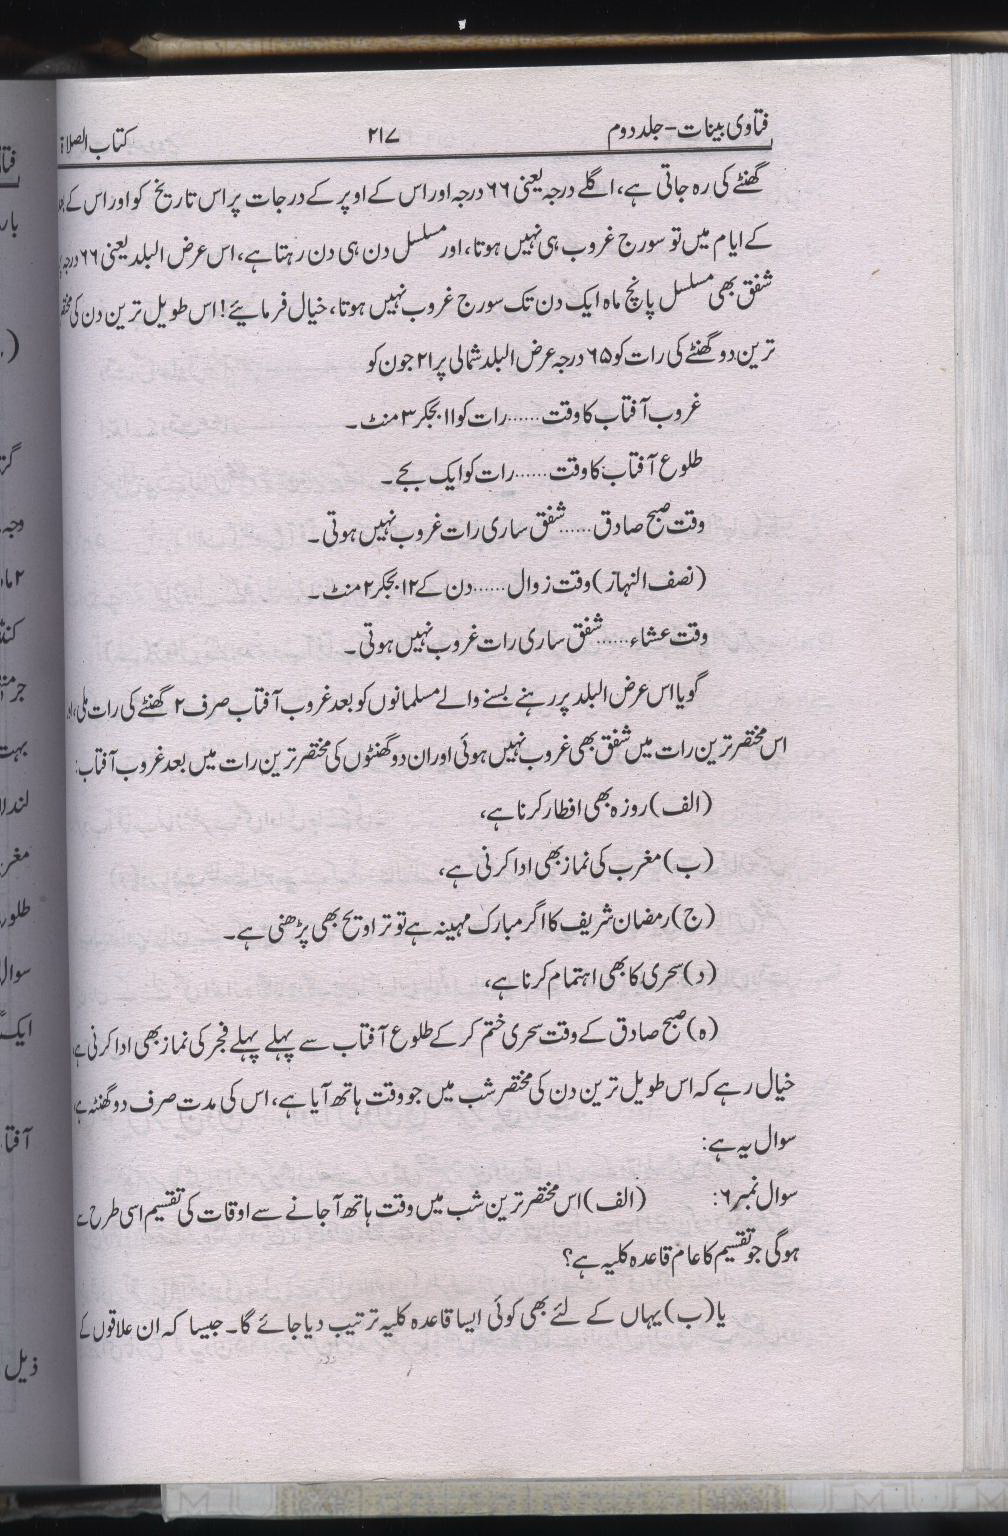 فتاوی بینات-جلد دوم ۲۱۷ کتاب الصلاۃ
گھنٹے کی رہ جاتی ہے، اگلے درجہ یعنی ۶۶ درجہ اور اس کے اوپر کے درجات پر اس تاریخ کو اور اس کے بعد
کے ایام میں تو سورج غروب ہی نہیں ہوتا، اور مسلسل دن ہی دن رہتا ہے، اس عرض البلد یعنی ۶۶ درجہ پر
شفق بھی مسلسل پانچ ماہ ایک دن تک سورج غروب نہیں ہوتا، خیال فرمائیے! اس طویل ترین دن کی مختصر
ترین دو گھنٹے کی رات کو ۶۵ درجہ عرض البلد شمالی پر ۲۱ جون کو
غروب آفتاب کا وقت......رات کو ۱۱ بجکر ۳ منٹ۔
طلوع آفتاب کا وقت......رات کو ایک بجے۔
وقت صبح صادق......شفق ساری رات غروب نہیں ہوتی۔
(نصف النہار) وقت زوال......دن کے ۱۲ بجکر ۲ منٹ۔
وقت عشاء......شفق ساری رات غروب نہیں ہوتی۔
گویا اس عرض البلد پر رہنے بسنے والے مسلمانوں کو بعد غروب آفتاب صرف ۲ گھنٹے کی رات ملی،
اس مختصر ترین رات میں شفق بھی غروب نہیں ہوئی اور ان دو گھنٹوں کی مختصر ترین رات میں بعد غروب آفتاب:
(الف) روزہ بھی افطار کرنا ہے،
(ب) مغرب کی نماز بھی ادا کرنی ہے،
(ج) رمضان شریف کا اگر مبارک مہینہ ہے تو تراویح بھی پڑھنی ہے۔
(د) سحری کا بھی اہتمام کرنا ہے،
(ہ) صبح صادق کے وقت سحری ختم کر کے طلوع آفتاب سے پہلے پہلے فجر کی نماز بھی ادا کرنی ہے
خیال رہے کہ اس طویل ترین دن کی مختصر شب میں جو وقت ہاتھ آیا ہے، اس کی مدت صرف دو گھنٹہ ہے
سوال یہ ہے:
سوال نمبر ۶: (الف) اس مختصر ترین شب میں وقت ہاتھ آجانے سے اوقات کی تقسیم اسی طرح سے
ہوگی جو تقسیم کا عام قاعدہ کلیہ ہے؟
یا (ب) یہاں کے لئے بھی کوئی ایسا قاعدہ کلیہ ترتیب دیا جائے گا۔ جیسا کہ ان علاقوں کے